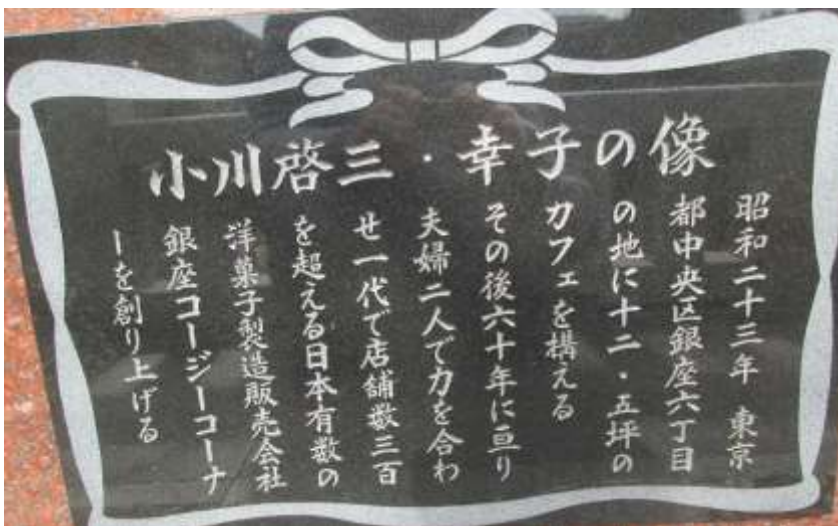 小川啓三・幸子の像
昭和二十三年 東京
都中央区銀座六丁目
の地に十二・五坪の
カフェを構える
その後六十年に亘り
夫婦二人で力を合わ
せ一代で店舗数三百
を超える日本有数の
洋菓子製造販売会社
銀座コージーコーナ
ーを創り上げる